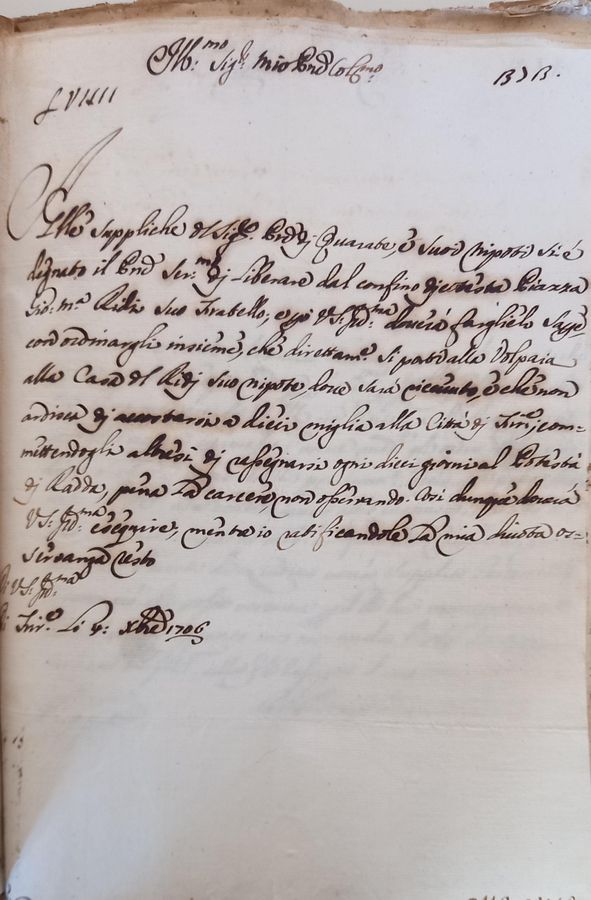 Ill:mo Sig:r mio Pnē Col:mo
1313.
LVIIII
Alle suppliche del Sig:r Pnē dj Quarate, è suoi nipoti si è
degnato il Pnē Ser:mo dj liberare dal confino dj cotesta Piazza
Gio: M:a Ridi suo Fratello; e po VS: Ill:ma doverà farglielo sape
con ordinargli insieme, che direttam:e si porti alla Volpaia
alla Casa del Ridj suo nipote, dove sarà ricevuto, è che non
ardisca dj accostarsi a dieci miglia alla Città dj Fir:e, com=
mettendogli altresì dj rassegnarsi ogni dieci giorni al Potestà
dj Radda, pena la carcere, non osservando. Così dunque doverà
VS: Ill:ma eseguire, mentre io ratificandole la mia divota os=
servanza resto
Di VS: Ill:ma
Di Fir:e Li xbre 1706